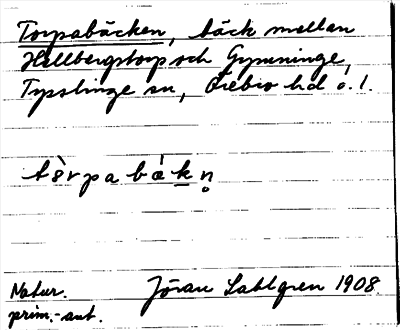 Torpabäcken, bäck mellan
Hellbergstorp och Gymninge,
Tysslinge sn, Örebro hd o. l.
tòrpabäkn̥
Natur. Jöran Sahlgren 1908
prim.-ant.